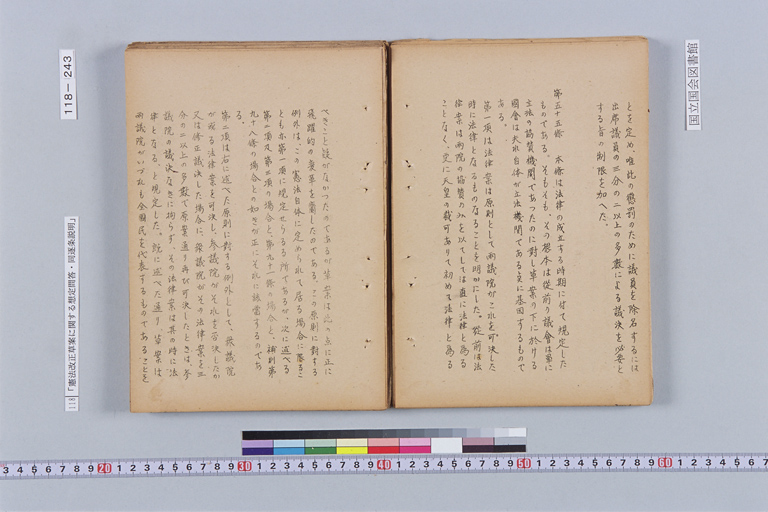 国立国会図書館
とを定め、唯此の懲罰のために議員を除名するには
出席議員の三分の二以上の多数による議決を必要と
する旨の制限を加へた。
第五十五條 本條は法律の成立する時期に付て規定した
ものである。そもそも、その根本は従前の議會は單に
立法の協賛機關であつたのに対し草案の下に於ける
國會は夫れ自体が立法機關である点に基因するもので
ある。
第一項は法律案は原則として両議院がこれを可決した
時に法律となるものなることを明かにした。従前は法
律案は両院の協賛のみを以てしては直に法律と為る
ことなく、更に天皇の裁可ありて初めて法律と為る
べきこと疑がなかつたのであるが草案は此の点に正に
飛躍的の変革を齎したのである。この原則に対する
例外は、この憲法自体に定められて居る場合に限るこ
とも本第一項に規定せらるる所であるが、次に述べる
第二項及第三項の場合と、第九十一條の場合と、補則第
九十八條の場合との如きが正にそれに該当するのであ
る。
第二項は右に述べた原則に対する例外として、衆議院
が或る法律案を可決し、参議院がそれを否決したか
又は修正議決した場合に、衆議院がその法律案を三
分の二以上の多数で原案通り再び可決したときは、参
議院の議決なきに拘らず、その法律案は其の時に法
律となる、と規定した。既に述べた通り、草案は
両議院がいづれも全國民を代表するものであることを
118-243
118 「憲法改正草案に関する想定問答・同逐条説明」
3 4 5 6 7 8 9 20 1 2 3 4 5 6 7 8 9 30 1 2 3 4 5 6 7 8 9 40 1 2 3 4 5 6 7 8 9 50 1 2 3 4 5 6 7 8 9 60 1 2 3 4 5 6 7